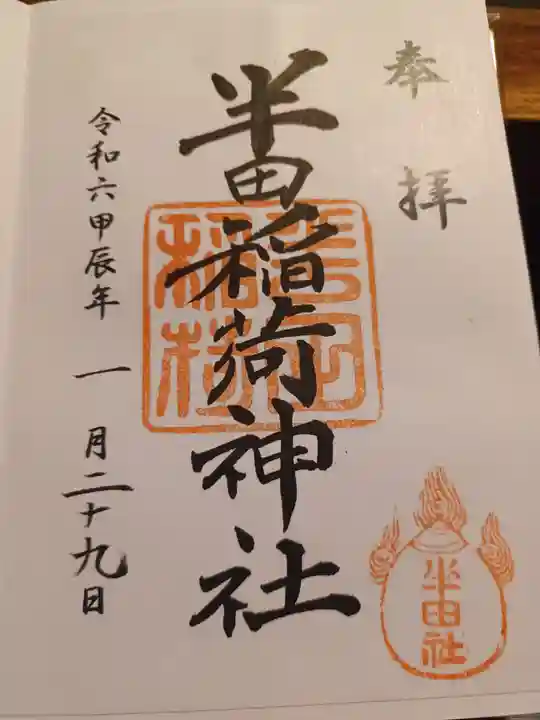 奉拝
半田稲荷神社
令和六甲辰年 一月二十九日
半田社